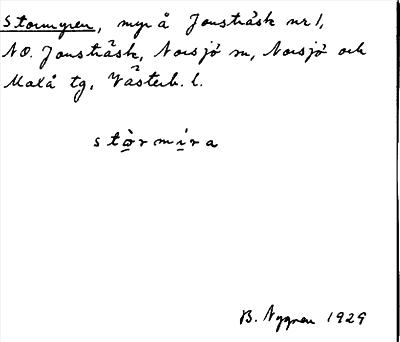 Stormyren, myr å Jonsträsk nr 1,
NO. Jonsträsk, Norsjö sn, Norsjö och
Malå tg, Västerb. l.
stòrmira
B. Nygren 1929